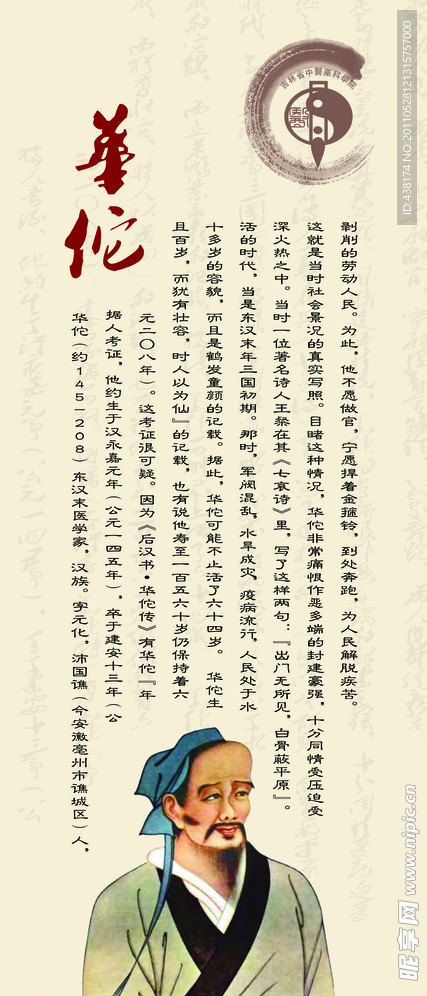 吉林省中醫藥科學院
華佗
华佗（约145-208）东汉末医学家，汉族。字元化，沛国谯（今安徽亳州市谯城区）人，
据人考证，他约生于汉永嘉元年（公元一四五年），卒于建安十三年（公
元二〇八年）。这考证很可疑。因为《后汉书·华佗传》有华佗『年
且百岁，而犹有壮容，时人以为仙』的记载，也有说他寿至一百五六十岁仍保持着六
十多岁的容貌，而且是鹤发童颜的记载。据此，华佗可能不止活了六十四岁。 华佗生
活的时代，当是东汉末年三国初期。那时，军阀混乱，水旱成灾，疫病流行，人民处于水
深火热之中。当时一位著名诗人王粲在其《七哀诗》里，写了这样两句：『出门无所见，白骨蔽平原』。
这就是当时社会景况的真实写照。目睹这种情况，华佗非常痛恨作恶多端的封建豪强，十分同情受压迫受
剥削的劳动人民。为此，他不愿做官，宁愿捍着金箍铃，到处奔跑，为人民解脱疾苦。
ID:438174 NO:20110528121315757000
昵享网 www.nipic.cn